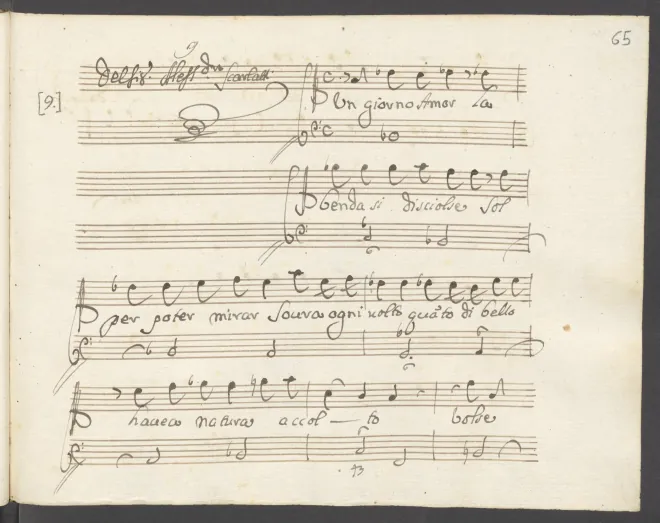 65
9
Del Sig.r Aless.dro Scarlatti
[9.]
Un giorno Amor la
benda si disciolse sol
per poter mirar soura ogni uolto quãto di bello
hauea natura accol — to uolse
43